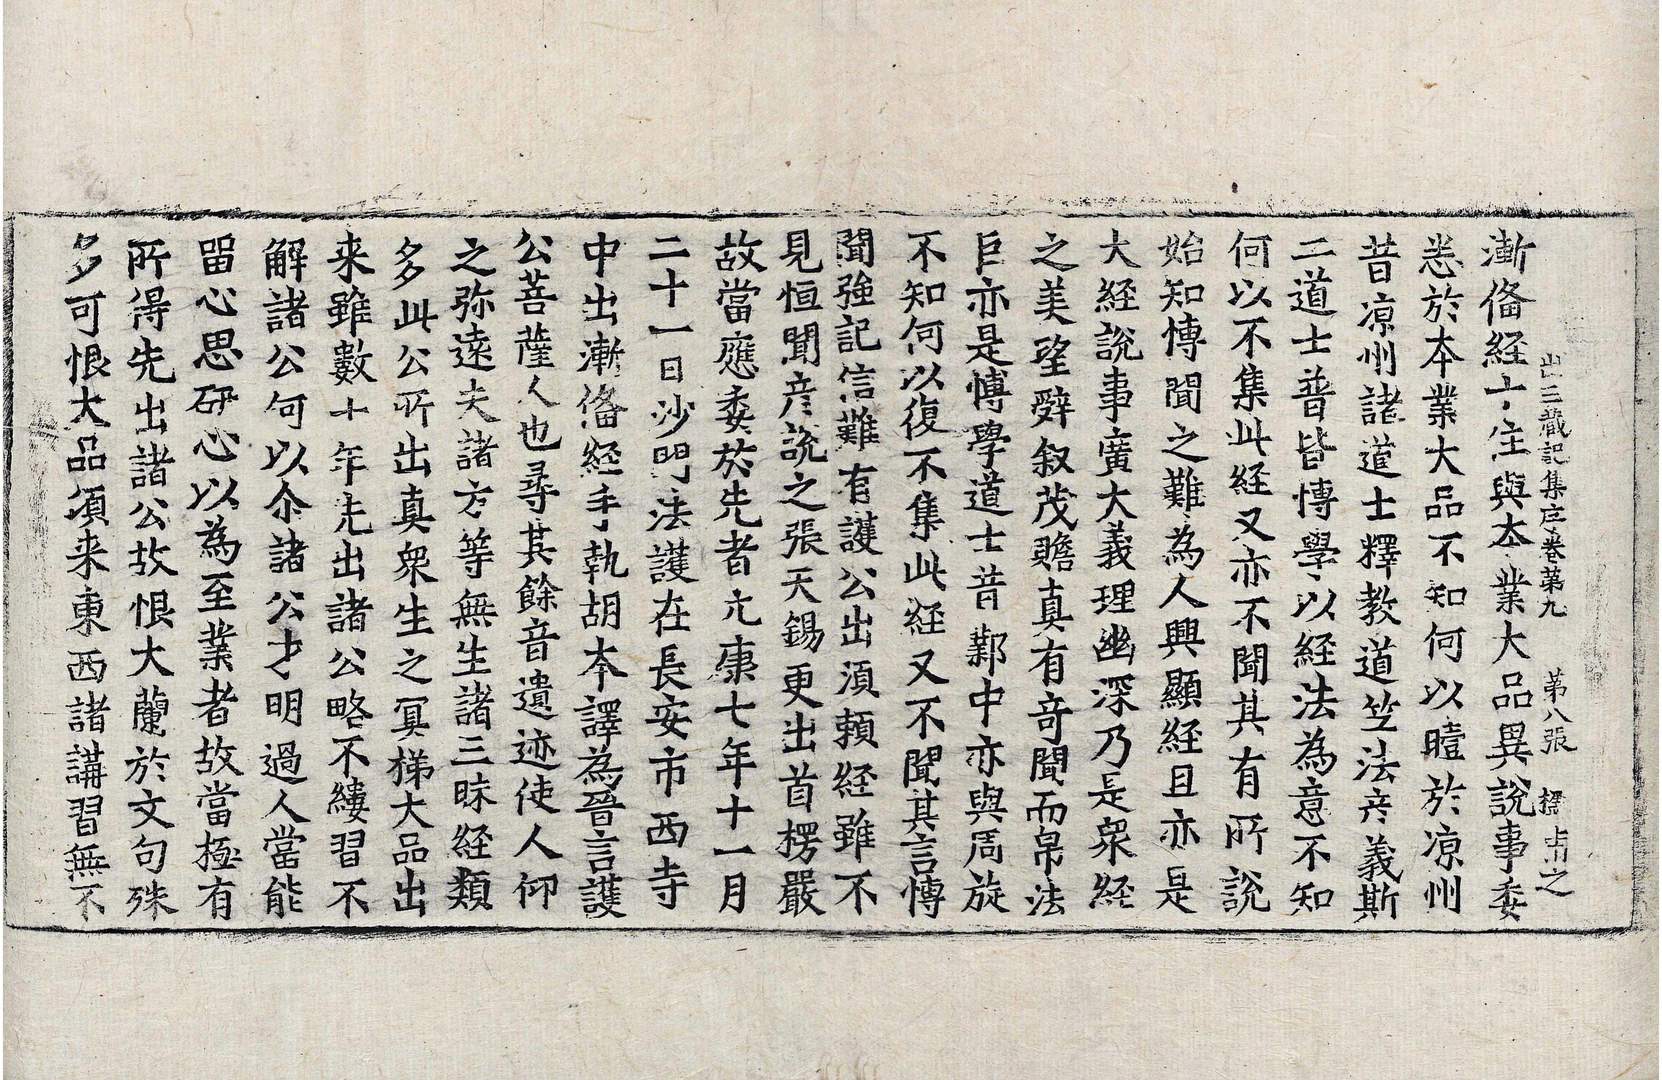 出三藏記集序卷第九 第八張 標 士才之
漸俻経十住與夲業大品異說事委
悉於夲業大品不知何以曀於凉州
昔凉州諸道士釋教道笁法彦義斯
二道士普皆愽學以経法為意不知
何以不集此経又亦不聞其有所說
始知愽聞之難為人興顯経且亦是
大経說事廣大義理幽深乃是衆経
之美望辤叙茂贍真有竒聞而帛法
巨亦是愽學道士昔鄴中亦與周旋
不知何以復不集此経又不聞其言愽
聞強記信難有護公出湏頼経雖不
見恒聞彦說之張天錫更出首楞嚴
故當應委於先者亢康七年十一月
二十一日沙門法護在長安市西寺
中出漸俻経手執胡夲譯為晉言護
公菩薩人也尋其餘音遺迹使人仰
之弥逺夫諸方等無生諸三昧経類
多此公所出真衆生之冥梯大品出
来雖數十年先出諸公略不縷習不
解諸公何以尒諸公才明過人當能
留心思研心以為至業者故當極有
所得先出諸公故恨大蘭於文句殊
多可恨大品頃来東西諸講習無不